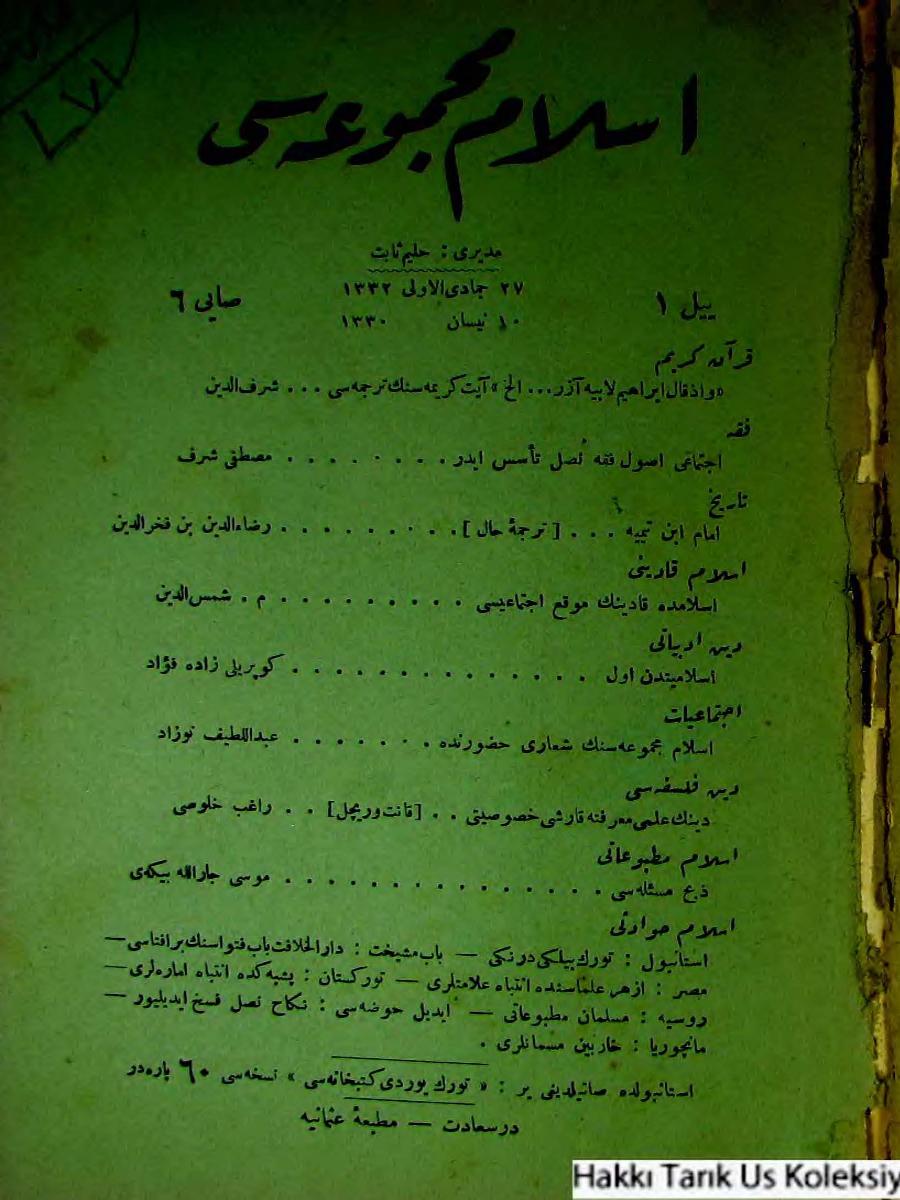 اسلام مجموعه سی
مدیری : حلیم ثابت
ییل ۱
۲۷ جمادی الاولی ۱۳۳۲
۱۰ نیسان ۱۳۳۰
صایی ٦
قرآن کریم
«واذقال ابراهیم لابیه آزر... الخ» آیت کریمه سنك ترجمه سی . . . شرف الدین
فقه
اجتماعی اصول فقه نصل تأسس ایدر . . . . . . . . مصطفی شرف
تاریخ
امام ابن تیمیه . . . [ ترجمۀ حال ] . . . . . . . . . رضاءالدین بن فخرالدین
اسلام قادینی
اسلامده قادینك موقع اجتماعیسی . . . . . . . . . م . شمس الدین
دین ادبیاتی
اسلامیتدن اول . . . . . . . . . . . . . . کوپریلی زاده فؤاد
اجتماعیات
اسلام مجموعه سنك شعاری حضورنده . . . . . . . عبداللطیف نوزاد
دین فلسفه سی
دینك علمی معرفته قارشی خصوصیتی . . [قانت وریچل] . . راغب خلوصی
اسلام مطبوعاتی
ذبح مسئله سی . . . . . . . . . . . . . . . موسی جارالله بیکه ی
اسلام حوادثی
استانبول : تورك بیلکی درنکی — باب مشیخت : دارالخلافت باب فتواسنك بر افتاسی —
مصر : ازهر علماسنده انتباه علامتلری — تورکستان : یشبه کده انتباه اماره لری —
روسیه : مسلمان مطبوعاتی — ایدیل حوضه سی : نکاح نصل فسخ ایدیلیور —
مانچوریا : خاربین مسمانلری .
استانبولده صاتیلدیغی یر : « تورك یوردی کتبخانه سی » نسخه سی ٦٠ پاره در
درسعادت — مطبعۀ عثمانیه
Hakkı Tarık Us Koleksiy